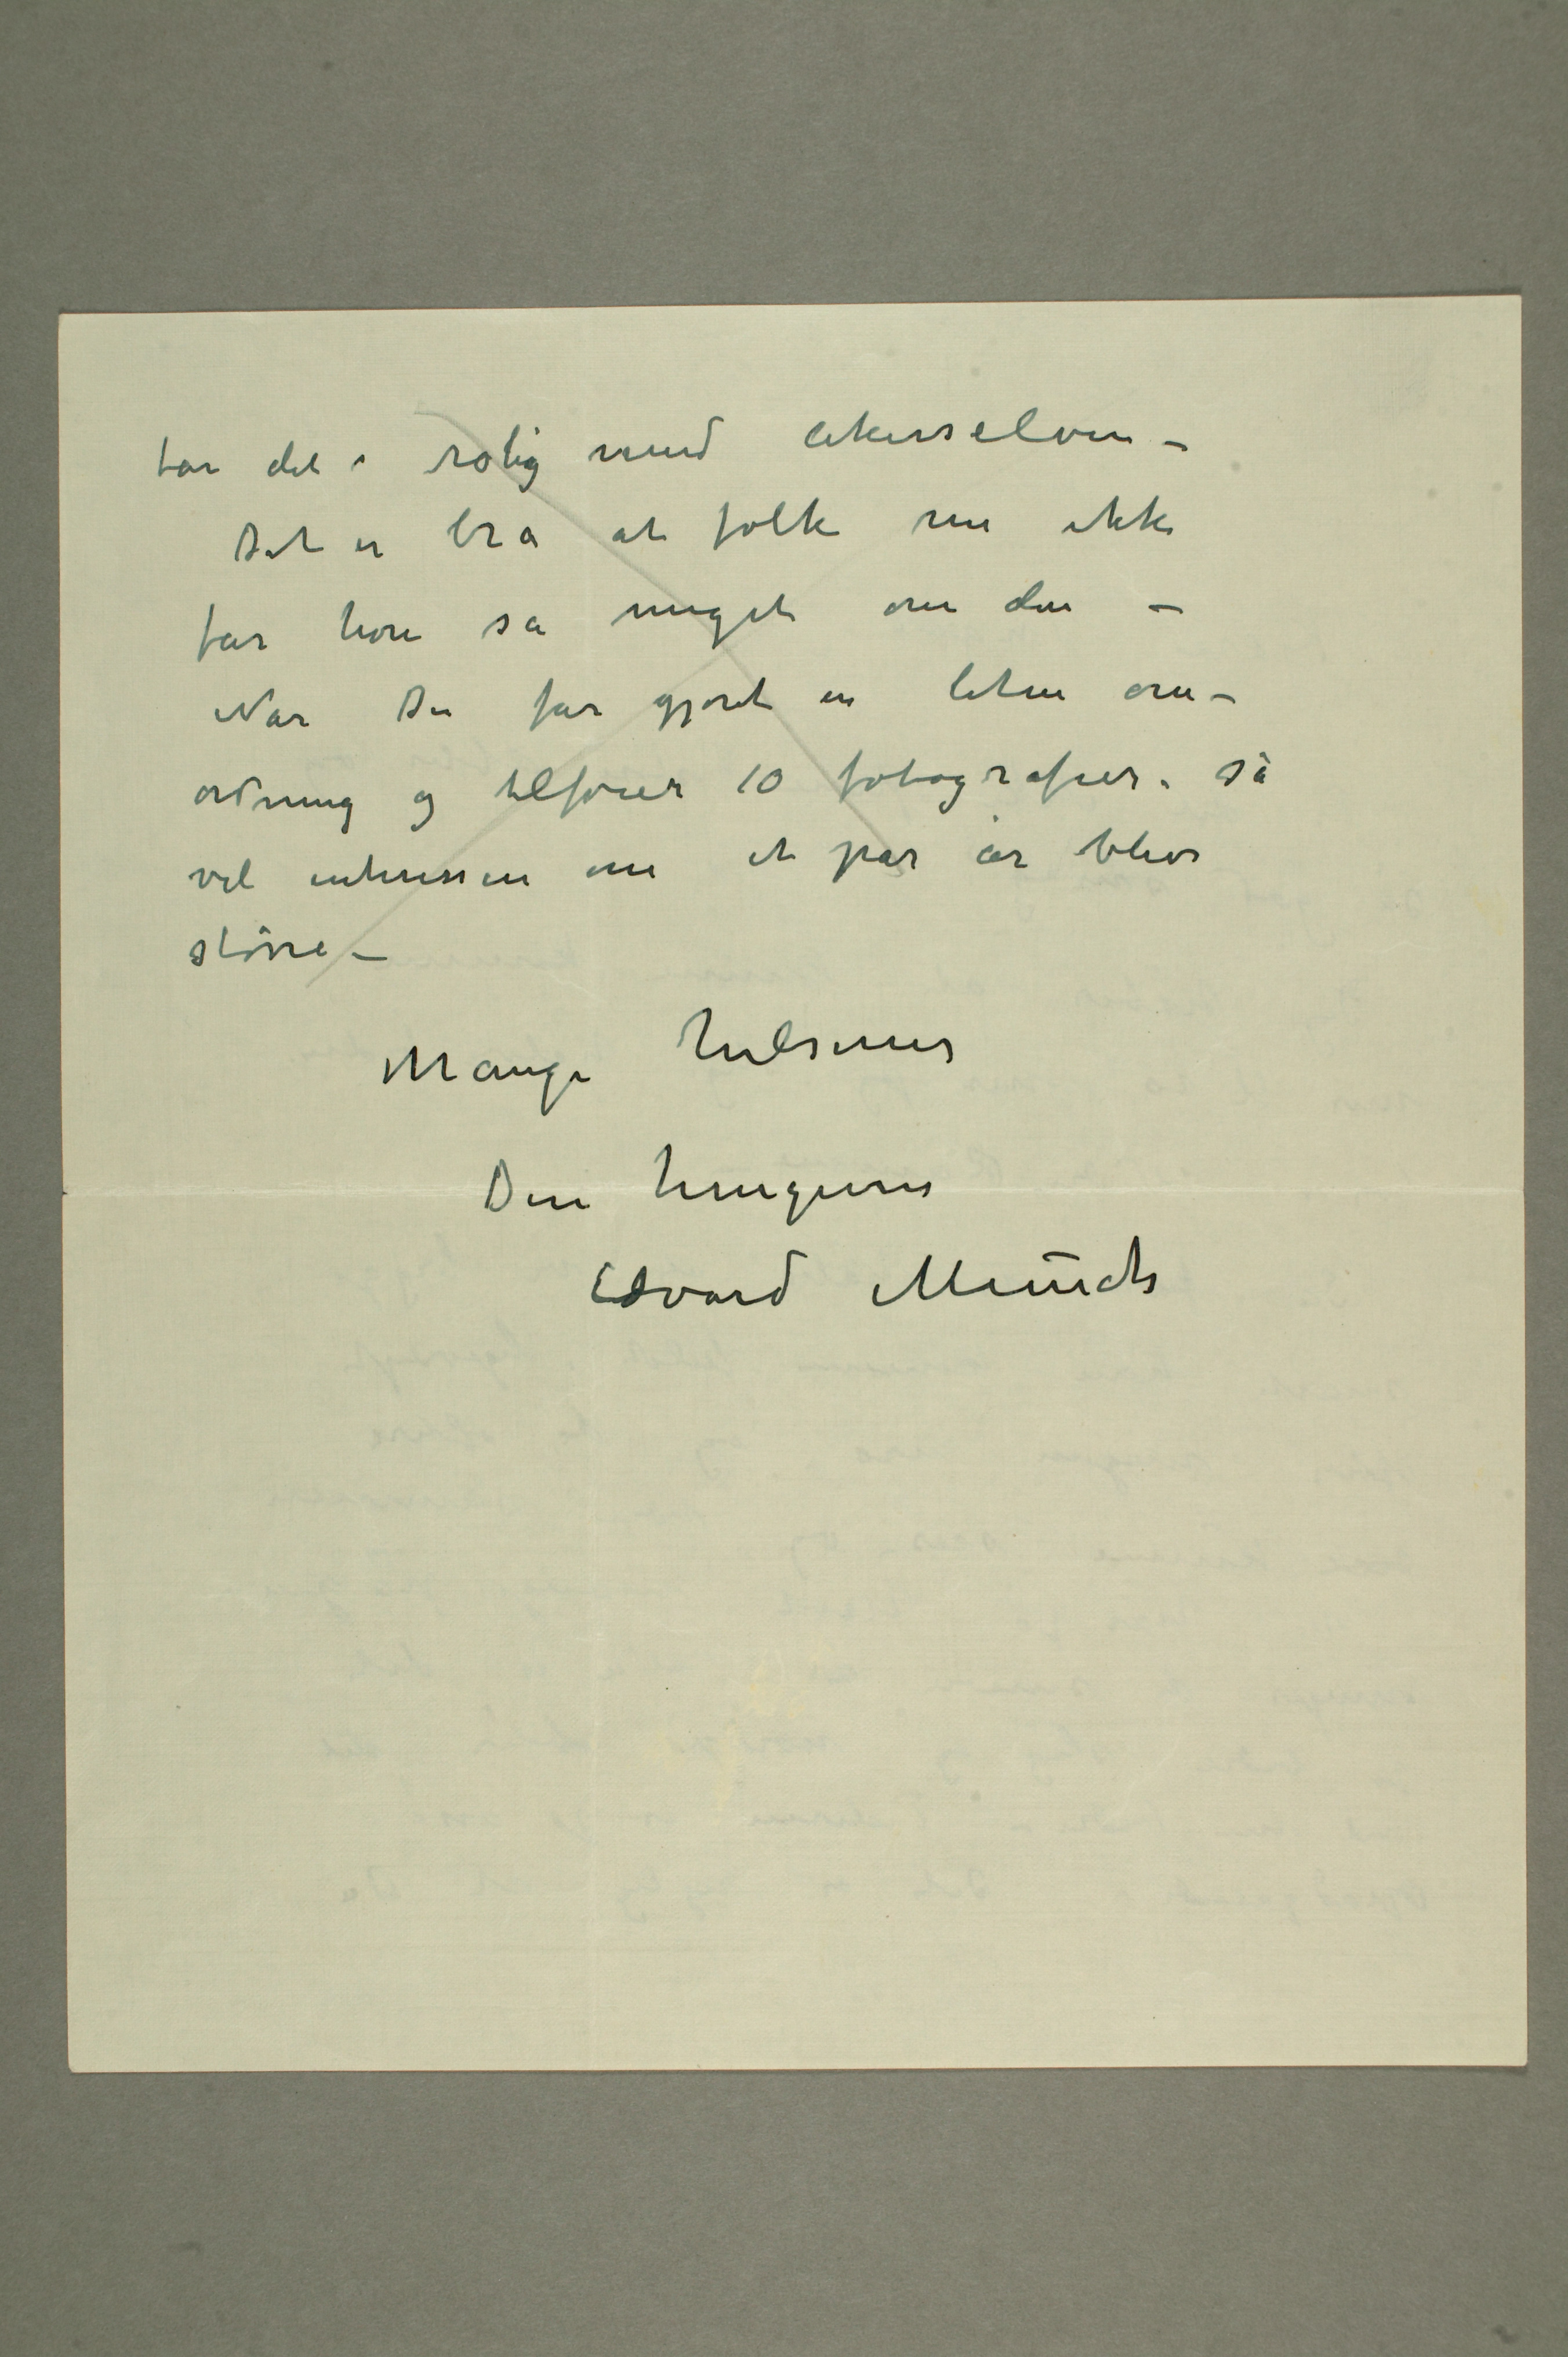 tar det i rolig med Akerselven –
Det er bra at folk nu ikke
får høre så meget om den –
Når Du får gjort en liten om-
ordning og tilføier 10 fotografier. så
vil interessen om et par år blive
større –
Mange hilsener
Din hengivne
Edvard Munch